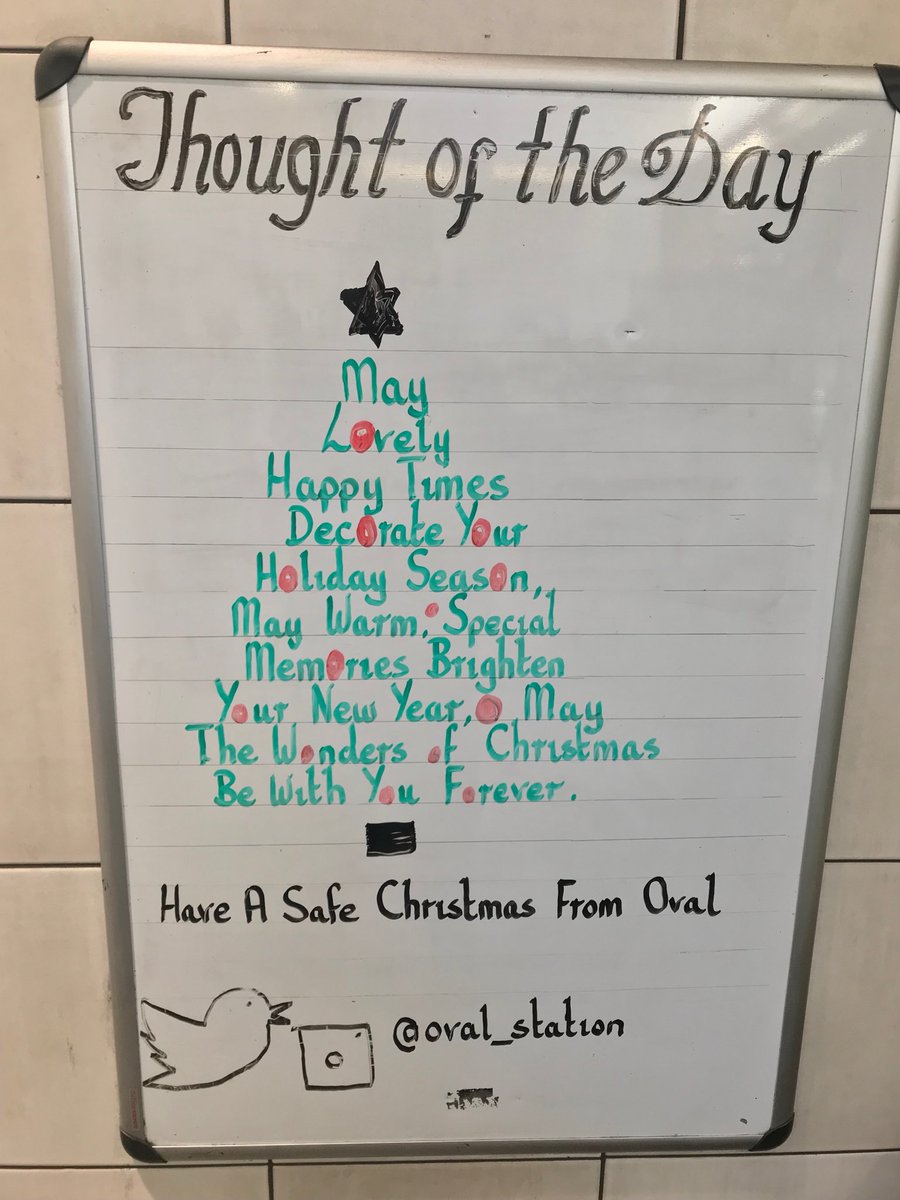 Thought of the Day
May
Lovely
Happy Times
Decorate Your
Holiday Season,
May Warm, Special
Memories Brighten
Your New Year, May
The Wonders of Christmas
Be With You Forever.
Have A Safe Christmas From Oval
@oval_station